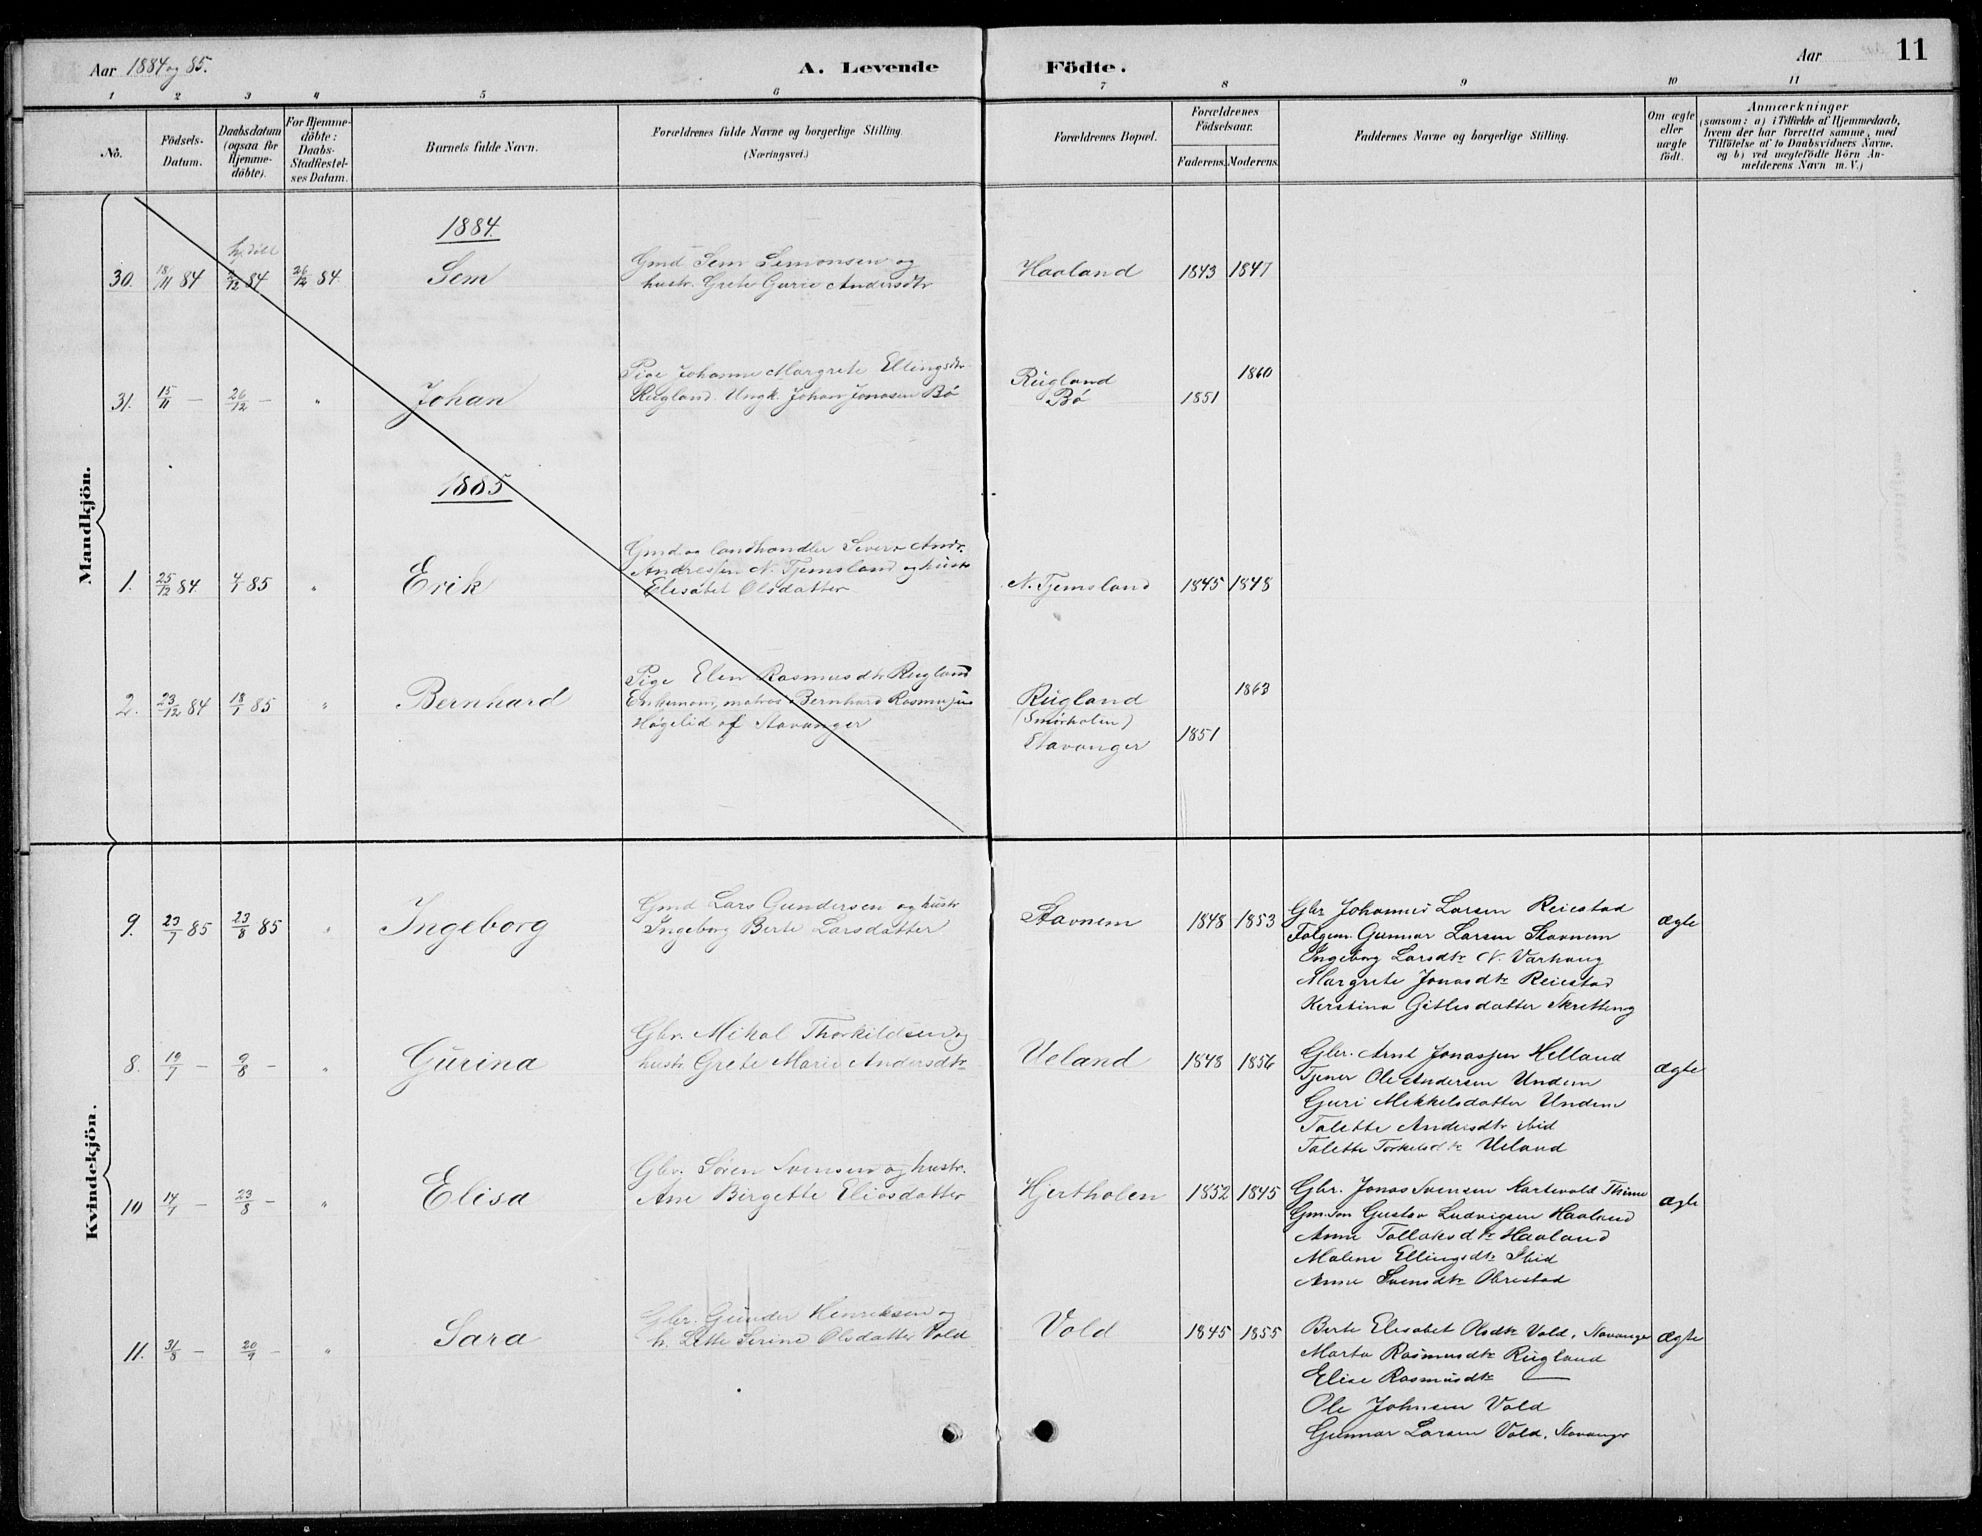 Aar 1884 og 85.
A. Levende Födte.
Aar
11
1 2 3 4 5 6 7 8 9 10 11
No.
Födsels-Datum.
Daabsdatum (ogsaa for Hjemme-döbte).
For Hjemme-döbte: Daabs-Stadfæstel-ses Datum.
Barnets fulde Navn.
Forældrenes fulde Navne og borgerlige Stilling
(Næringsvei.)
Forældrenes Bopæl.
Forældrenes Födselsaar.
Faderens. Moderens.
Faddernes Navne og borgerlige Stilling.
Om ægte eller uægte født.
Anmærkninger
(sonsom: a) i Tilfælde af Hjemmedaab,
hvem der har forrettet samme, med
Tilföielse af to Daabsvidners Navne.
og b) ved uægtefödte Börn An-
melderens Navn m. V.)
Mandkjön.
1884.
hj. döbt
30. 18/11 84 2/12 84 26/12 84. Sem
Gmd Sem Simonsen og
hustr. Grete Gurie Andersdtr
Haaland 1843 1847
31. 15/11 — 26/12 — " Johan
Pige Johanne Margrete Ellingsdtr
Rügland. Ungk. Johan Jonasen Bö
Rügland
Bö
1851 1860
1885
1. 25/12 84. 4/1 85 " Erik
Gmd og landhandler Sivert Andr.
Andressen N. Tjemsland og hustr
Elisabet Olsdatter
N. Tjemsland 1845 1848
2. 23/12 84 18/1 85 " Bernhard
Pige Elen Rasmusdtr Rügland
Enkemand, matros Bernhard Rasmussen
Høgelid af Stavanger
Rügland
(Smørholen)
Stavanger
1851 1863
Kvindekjön.
9. 23/7 85 23/8 85 " Ingeborg
Gmd Lars Gundersen og hustr
Ingeborg Berte Larsdatter
Stavnem 1848 1853
Gbr Johannes Larsen Reiestad
Folgem. Gunnar Larsen Stavnem
Ingeborg Larsdtr N. Varhaug
Margrete Jonasdtr Reiestad
Kerstina Gitlesdatter Skretting
ægte
8. 19/7 — 9/8 — " Gürina
Gbr. Mikal Thorkildsen og
hustr Grete Marie Andersdtr
Ueland 1848 1856
Gbr. Arnt Jonassen Helland
Tjener Ole Andersen Undem
Guri Mikkelsdatter Undem
Talette Andersdtr ibid
Talette Torkelsdtr Ueland
ægte
10 14/7 — 23/8 — " Elisa
Gbr. Sören Svensen og hustr.
Ane Birgette Eliasdatter
Hjertholen 1852 1845
Gbr. Jonas Svensen Kartevold Thime
Gm.søn Gustav Ludvigsen Haaland
Anne Tollaksdtr Haaland
Malene Ellingsdtr Ibid
Anne Svensdtr Obrestad
ægte
11. 31/8 — 20/9 — " Sara
Gbr. Gunder Henriksen og
h. Lette Serine Olsdatter Vold
Vold 1845 1855
Berte Elisabet Olsdtr Vold, Stavanger
Marta Rasmusdtr Rügland
Elise Rasmusdtr —
Ole Johnsen Vold
Gunnar Larsen Vold, Stavanger
ægte